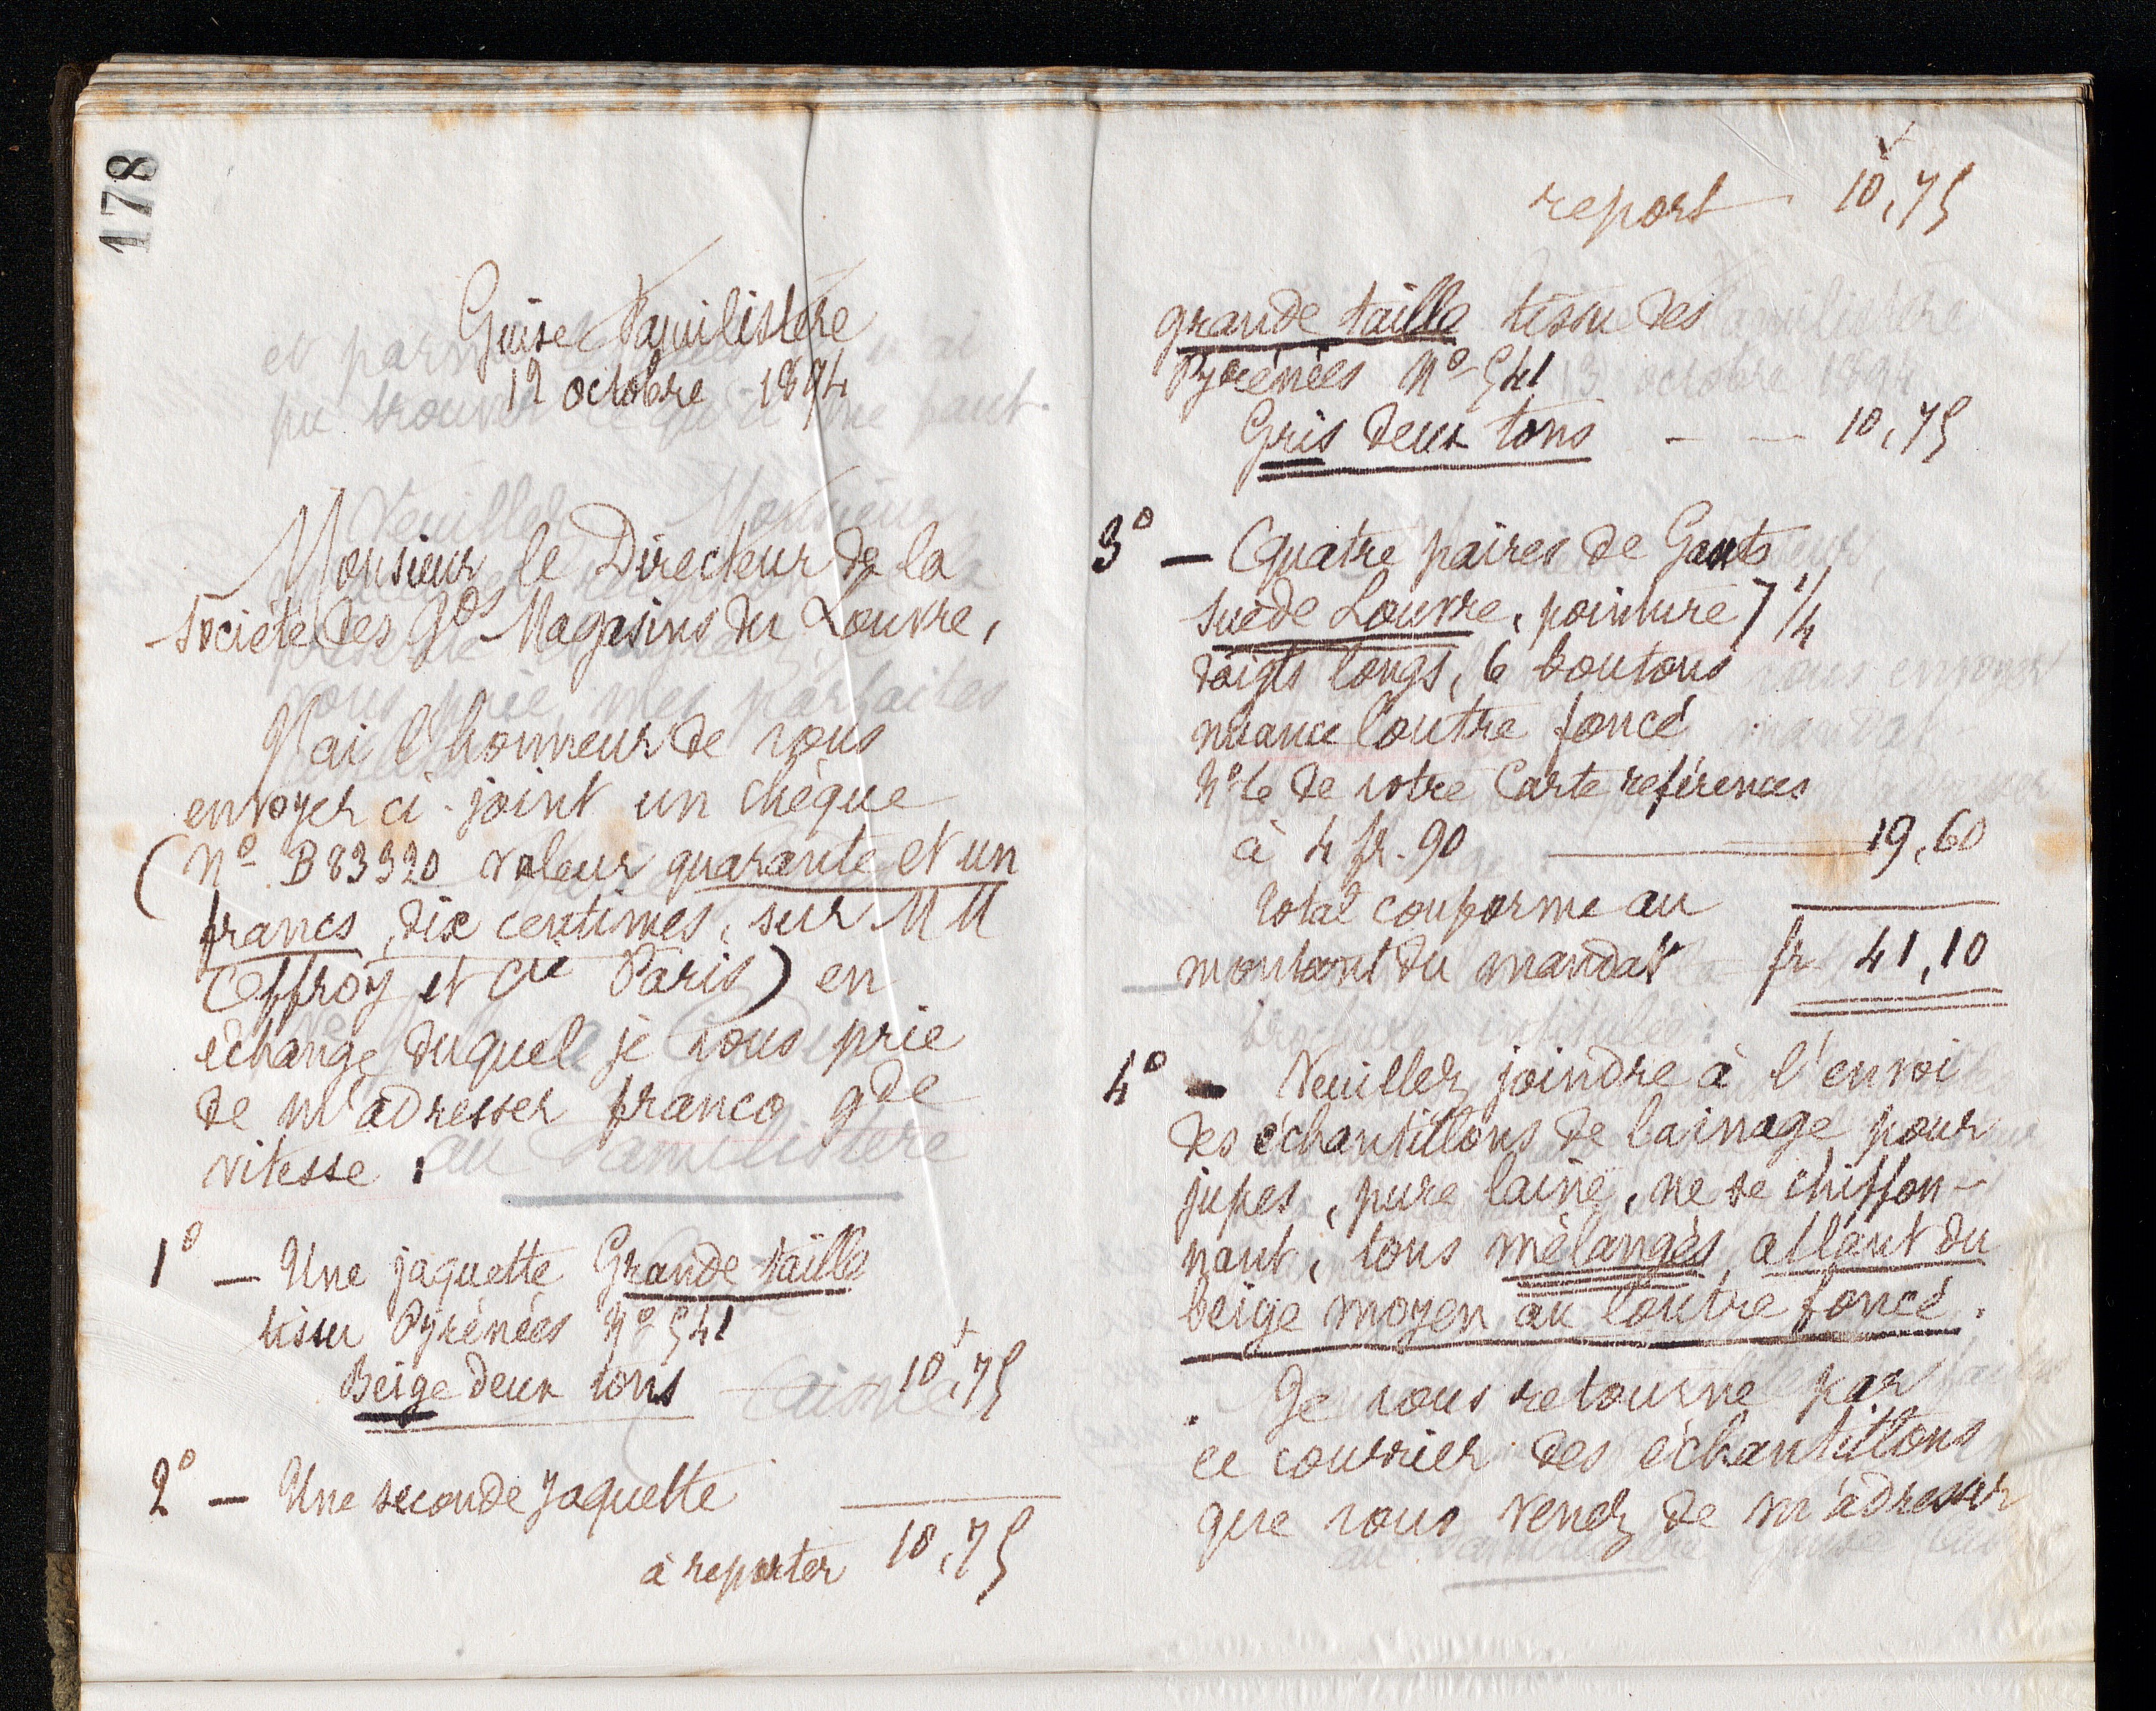 178
Guise Familistère
12 octobre 1894
Monsieur le Directeur de la
Société des Gds Magasins du Louvre,
J'ai l'honneur de vous
envoyer ci-joint un chèque
(No B83320 valeur quarante et un
francs, dix centimes, sur MM
Offroy et Cie Paris) en
échange duquel je vous prie
de m'adresser franco gde
vitesse :
1o — Une jaquette Grande taille
tissu Pyrénées No 541
Beige deux tons 10,75
2o — Une seconde Jaquette
à reporter 10,75
report 10,75
grande taille tissu des
Pyrénées No 541
Gris deux tons — — 10,75
3o — Quatre paires de Gants
suède Louvre, pointure 7 1/4
doigts longs, 6 boutons
nuance loutre foncé
No 6 de votre Carte références
à 4 fr. 90 — 19,60
total conforme au
montant du mandat fr 41,10
4o — Veuillez joindre à l'envoi
des échantillons de lainage pour
jupes, pure laine, ne se chiffon-
nant, tons mélangés allant du
beige moyen au loutre foncé.
Je vous retourne par
ce courrier des échantillons
que vous venez de m'adresser